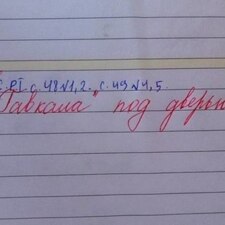 с. 48 №1, 2. с. 49 №4, 5.
Гавкала" под дверью